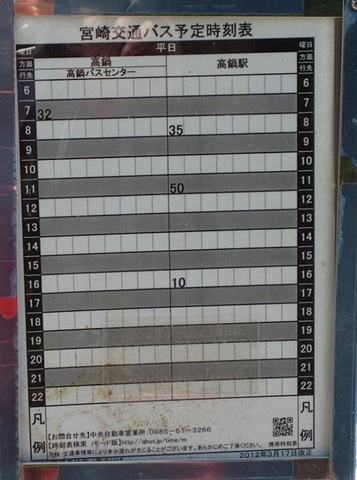 宮崎交通バス予定時刻表
曜日 平日 曜日
方面 高鍋 高鍋駅 方面
行先 高鍋バスセンター 行先
6 6
7 32 7
8 35 8
9 9
10 10
11 50 11
12 12
13 13
14 14
15 15
16 10 16
17 17
18 18
19 19
20 20
21 21
22 22
凡例 凡例
【お問合せ先】中央自動車営業所 0985-51-3266
【時刻表検索 iモード版】http://qbus.jp/time/m
天候・交通事情等により多少遅れが生じることがございます。あらかじめご了承ください。
携帯時刻表
2012年3月17日改正